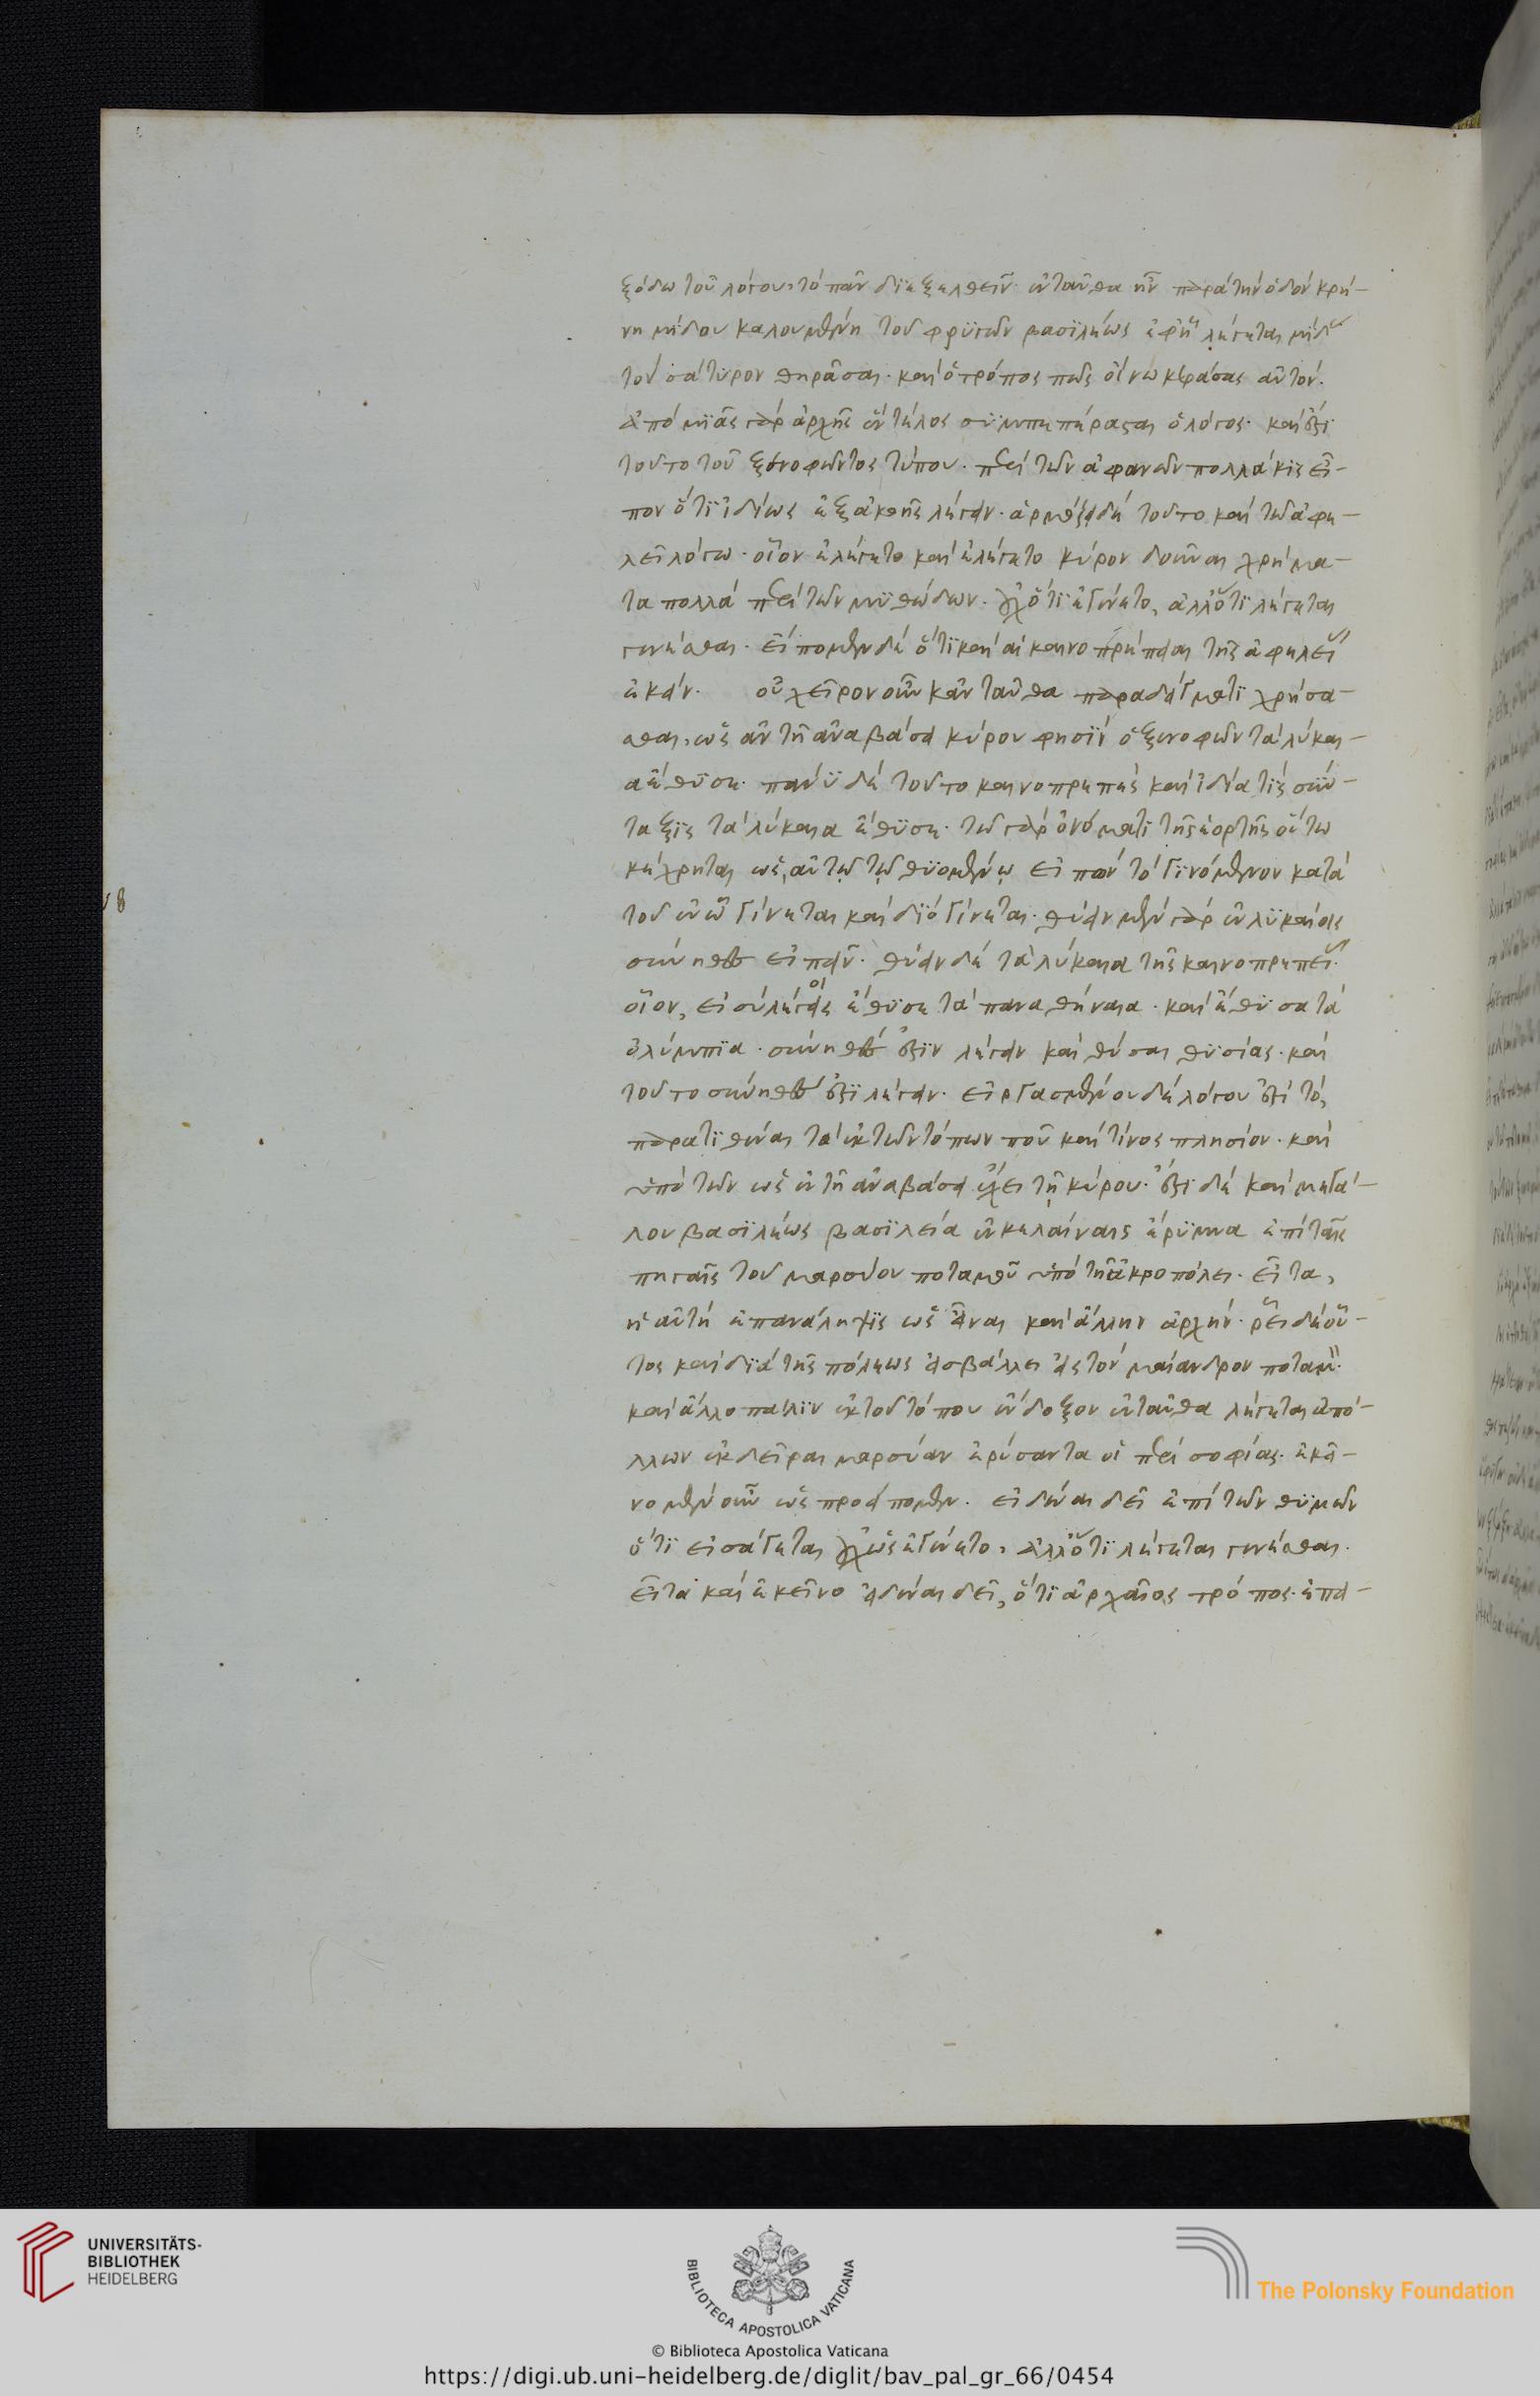 ξόδω τοῦ λόγου, τὸ πᾶν διεξελθεῖν. ἐνταῦθα ἦν παρὰ τὴν ὁδὸν κρή-
νη μίδου καλουμένη τοῦ φρυγῶν βασιλέως ἐφ᾽ ἧ λέγεται μίδ
τὸν σάτυρον θηρᾶσαι. καὶ ὁ τρόπος πῶς οἴνω κεράσας αὐτόν.
ἀπὸ μιᾶς γὰρ ἀρχῆς ἓν τέλος συμπεπέρασται ὁ λόγος. καὶ ἔστι
τοῦτο τοῦ ξενοφῶντος τύπου. περὶ τῶν ἀφανῶν πολλάκις εἶ-
πον ὅτι ἰδίως ἐξ ἀκοῆς λέγειν. ἁρμόζει δὲ τοῦτο καὶ τῶ ἀφε-
λεῖ λόγω. οἷον ἐλέγετο καὶ ἐλέγετο κύρον δοῦναι χρήμα-
τα πολλά περὶ τῶν μυθώδων. οὐχ ὅτι ἐγένετο, ἀλλ᾽ ὅτι λέγεται
γενέσθαι. εἴπομεν δὲ ὅτι καὶ αἱ καινοπρέπειαι τῆς ἀφελεί
ἐκεῖν. οὐ χεῖρον οὖν κἀνταῦθα παραδείγματι χρήσα-
σθαι, ὡς ἐν τῆ ἀναβάσει κύρου φησὶν ὁ ξενοφῶν τὰ λύκαι-
α ἔθυσε. πάνυ δὲ τοῦτο καινοπρεπὲς καὶ ἰδία τὶς σύν-
ταξις τὰ λύκαια ἔθυσε. τῶ γὰρ ὀνόματι τῆς ἑορτῆς οὕτω
κέχρηται ὡς, αὐτῷ τῷ θυομένῳ εἰπὼν τὸ γινόμενον κατὰ
τοῦ ἐν ὧ γίνεται καὶ διὸ γίνεται. θύειν μὲν γὰρ ἐν λυκαίοις
σύνηθες εἰπεῖν. θύειν δὲ τὰ λύκαια τῆς καινοπρεπεί.
οἷον, εἰ σὺ λέγοις ἔθυσε τὰ παναθήναια. καὶ ἔθυσα τὰ
ὀλύμπια. σύνηθες ἔστιν λέγειν καὶ θῦσαι θυσίας. καὶ
τοῦτο σύνηθες ἔστι λέγειν. εἰργασμένου δὲ λόγου ἐστὶ τὸ,
παρατιθέναι τὰ ἐκ τῶν τόπων ποῦ καὶ τίνος πλησίον. καὶ
ὑπὸ τῶν ὡς ἐν τῆ ἀναβάσει ἔχει τῇ κύρου. ἔστι δὲ καὶ μεγά-
λου βασιλέως βασίλεια ἐν κελαίναις ἐρυμνὰ ἐπὶ ταῖς
πηγαῖς τοῦ μαρσύου ποταμοῦ ὑπὸ τῆ ἀκροπόλει. εἶτα,
ἡ αὐτὴ ἐπανάληψις ὡς εἶναι καὶ ἄλλην ἀρχήν. ῥεῖ δὲ οὗ-
τος καὶ διὰ τῆς πόλεως εἰσβάλλει εἰς τὸν μαίανδρον ποταμ.
καὶ ἄλλο πάλιν ἐκ τοῦ τόπου ἔνδοξον ἐνταῦθα λέγεται ἀπό-
λλων ἐκδεῖραι μαρσύαν ἐρίσαντα οἱ περὶ σοφίας. ἐκεῖ-
νο μὲν οὖν ὡς προείπομεν. εἰδέναι δεῖ ἐπὶ τῶν θυμῶν
ὅτι εἰσάγεται οὐχ ὡς ἐγένετο, ἀλλ᾽ ὅτι λέγεται γενέσθαι.
εἶτα καὶ ἐκεῖνο εἰδέναι δεῖ, ὅτι ἀρχαῖος τρόπος. ἐπει-
UNIVERSITÄTS-
BIBLIOTHEK
HEIDELBERG
BIBLIOTECA APOSTOLICA VATICANA
© Biblioteca Apostolica Vaticana
The Polonsky Foundation
https://digi.ub.uni-heidelberg.de/diglit/bav_pal_gr_66/0454